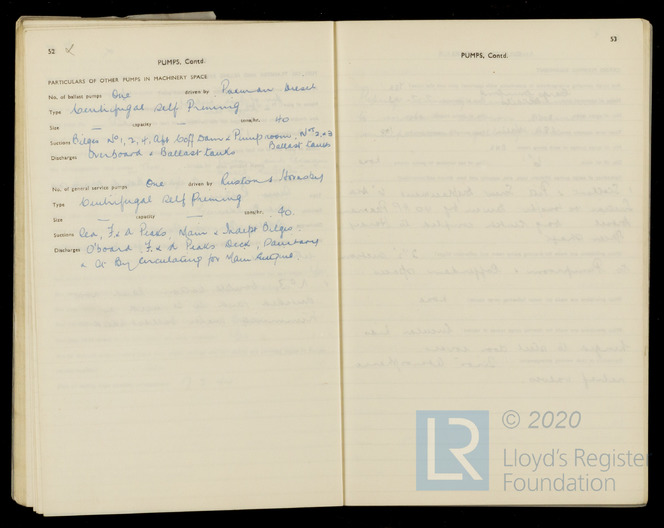 52
PUMPS, Contd.
PARTICULARS OF OTHER PUMPS IN MACHINERY SPACE
No. of ballast pumps One driven by Paxman Diesel
Type Centrifugal Self Priming
Size — capacity — tons/hr. 40
Suctions Bilges Nos 1, 2, 4, Aft Coff Dam & Pumproom. Nos 2, & 3
Ballast tanks
Discharges Overboard & Ballast tanks
No. of general service pumps One driven by Ruston & Hornsby
Type Centrifugal Self Priming
Size — capacity — tons/hr. 40
Suctions Sea, F. & A Peaks, Main & Bilges
Discharges O'board, F. & A Peaks Deck, Sanitary
& Circulating for Main Engine.
53
PUMPS, Contd.
LR
© 2020
Lloyd's Register
Foundation